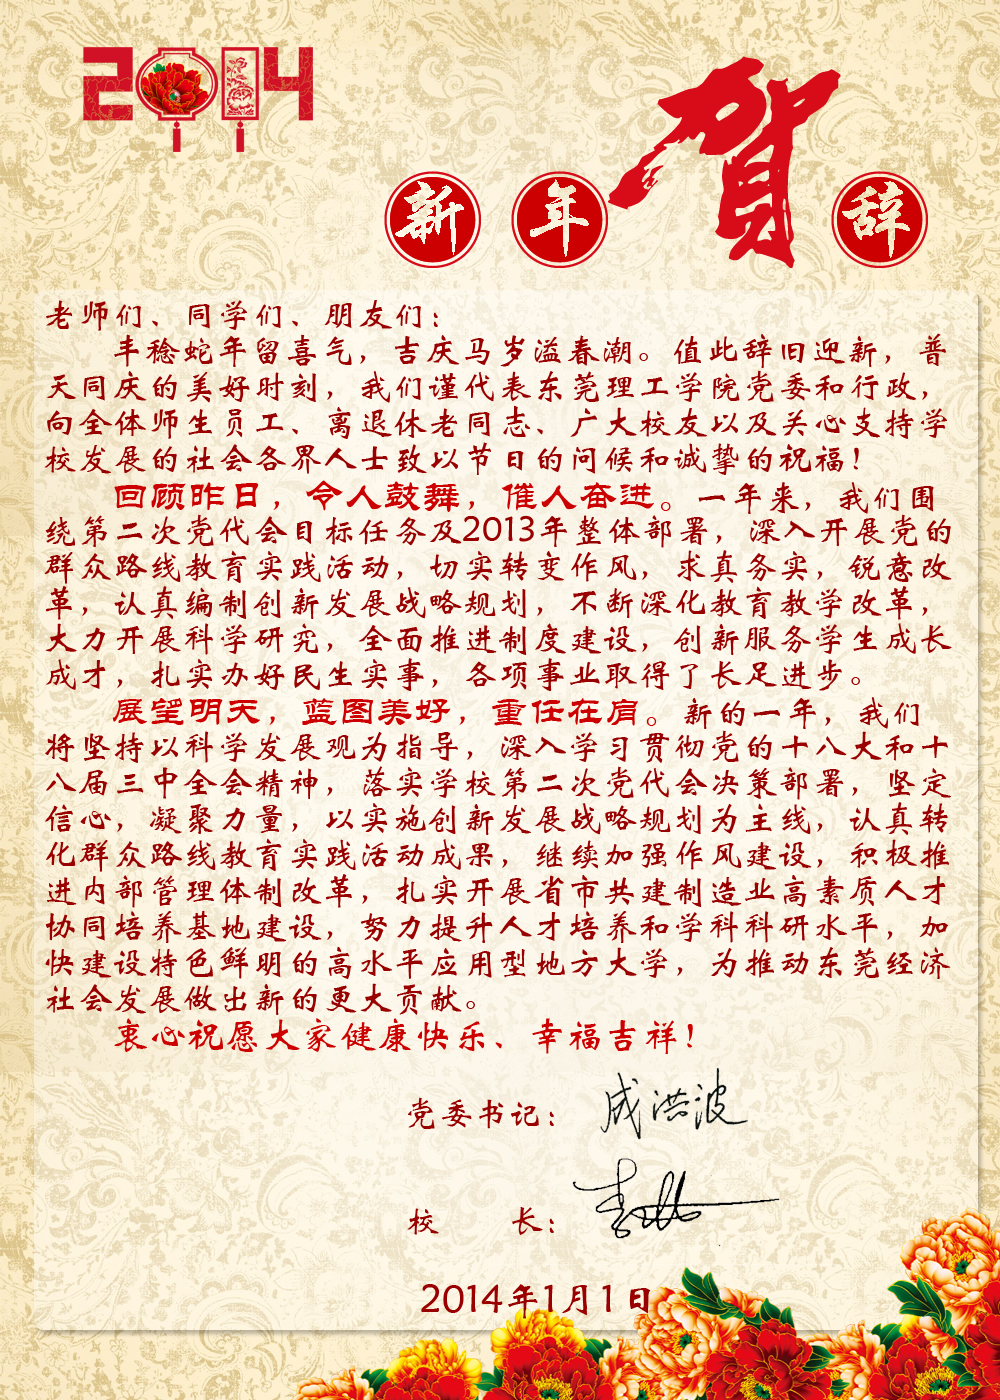 2014
新年贺辞
老师们、同学们、朋友们：
丰稔蛇年留喜气，吉庆马岁溢春潮。值此辞旧迎新，普
天同庆的美好时刻，我们谨代表东莞理工学院党委和行政，
向全体师生员工、离退休老同志、广大校友以及关心支持学
校发展的社会各界人士致以节日的问候和诚挚的祝福！
回顾昨日，令人鼓舞，催人奋进。一年来，我们围
绕第二次党代会目标任务及2013年整体部署，深入开展党的
群众路线教育实践活动，切实转变作风，求真务实，锐意改
革，认真编制创新发展战略规划，不断深化教育教学改革，
大力开展科学研究，全面推进制度建设，创新服务学生成长
成才，扎实办好民生实事，各项事业取得了长足进步。
展望明天，蓝图美好，重任在肩。新的一年，我们
将坚持以科学发展观为指导，深入学习贯彻党的十八大和十
八届三中全会精神，落实学校第二次党代会决策部署，坚定
信心，凝聚力量，以实施创新发展战略规划为主线，认真转
化群众路线教育实践活动成果，继续加强作风建设，积极推
进内部管理体制改革，扎实开展省市共建制造业高素质人才
协同培养基地建设，努力提升人才培养和学科科研水平，加
快建设特色鲜明的高水平应用型地方大学，为推动东莞经济
社会发展做出新的更大贡献。
衷心祝愿大家健康快乐、幸福吉祥！
党委书记：成洪波
校 长：
2014年1月1日